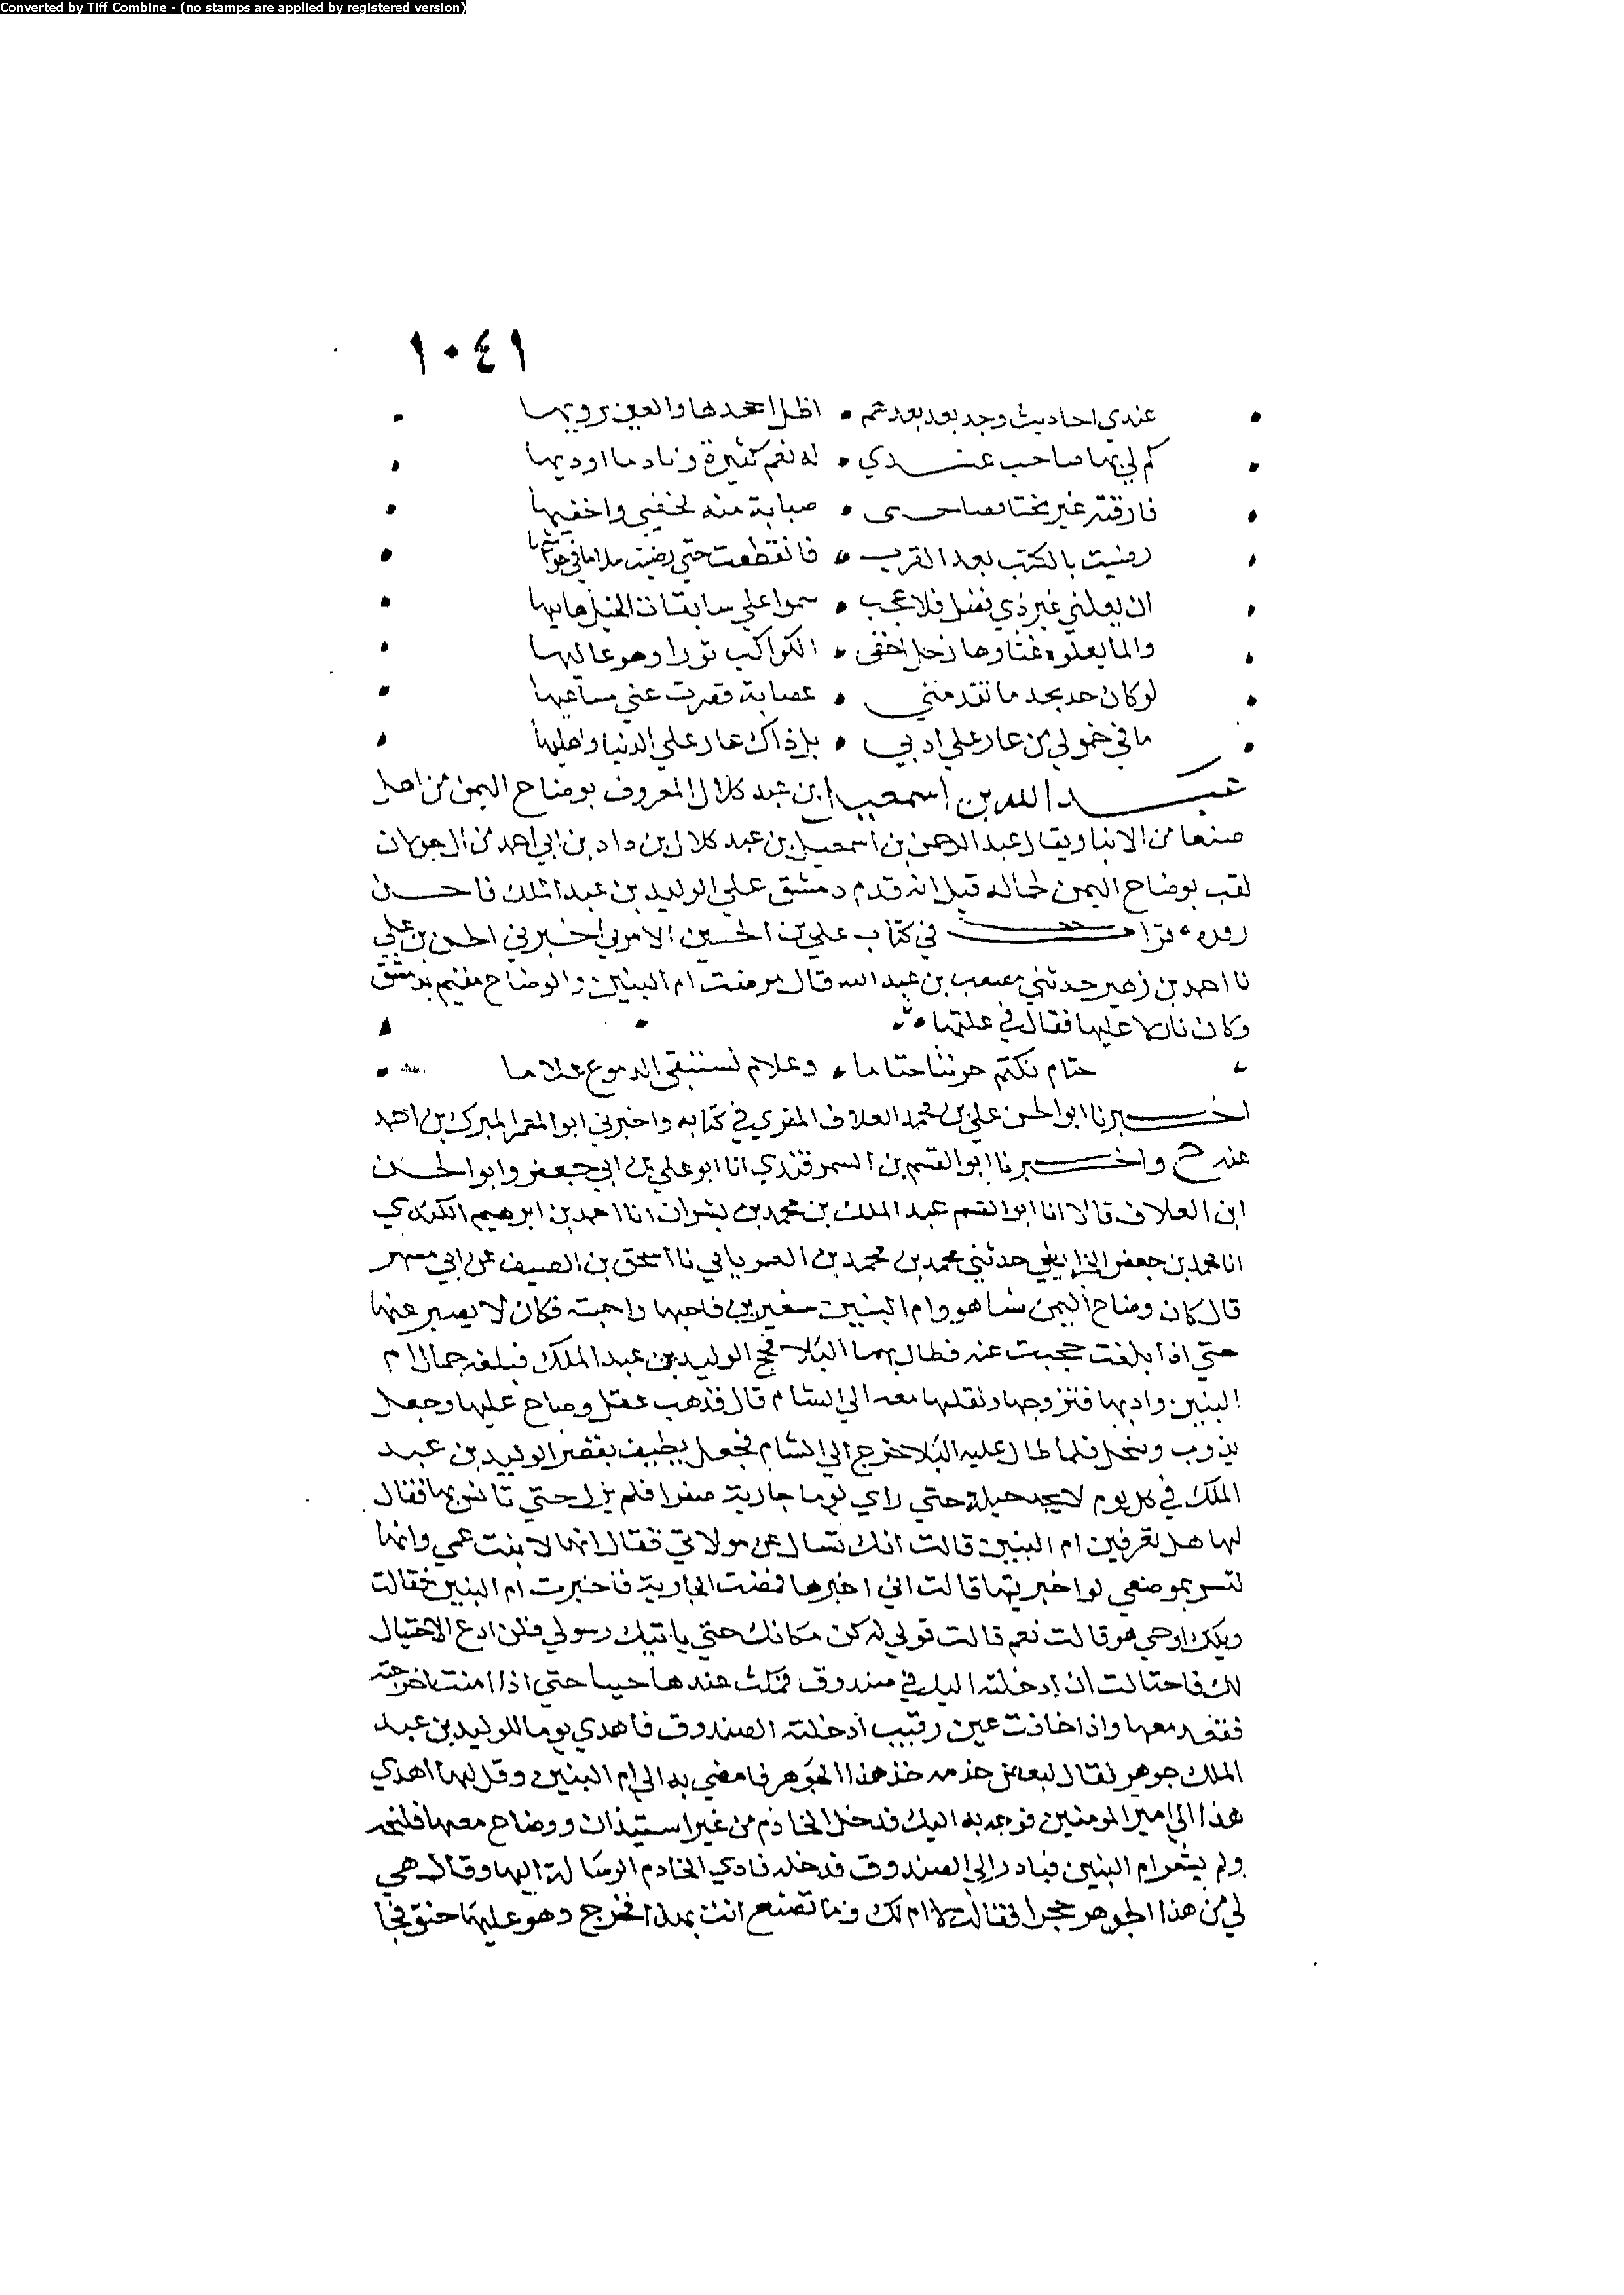 Converted by Tiff Combine - (no stamps are applied by registered version)
١٠٤١
عندي احاديث وجد بعد بعدهم • اظل اجحدها والعين ترويها
كم لي بها صاحب عندي • له نعم كثيرة وناد ما اوديها
فارقته غير مختار فصاحبني • صبابة منه تخفيني واخفيها
رضيت بالكتب بعد القرب • فانقطعت حتى رضيت سلاما في حواشيها
ان يعلني غير ذي فضل فلا عجب • سموا على سابقات الخيل هابيها
والما يعلوه غثاوها زحل اخفى • الكواكب نورا وهو عاليها
لو كان جد بجد ما تقدمني • عصابة قصرت عني مساعيها
ما في خمولي من عار على ادبي • بل ذاك عار على الدنيا واهليها
عبد الله بن اسمعيل ابن عبد كلال المعروف بوضاح اليمن من اهل
صنعا من الابنا ويقال عبد الرحمن بن اسمعيل بن عبد كلال بن داد بن ابي احمد من ال
لقب بوضاح اليمن لجماله قيل انه قدم دمشق على الوليد بن عبد الملك فاحسن
رفده قرات في كتاب علي بن الحسين الاموي اخبرني الحسن بن علي
نا احمد بن زهير حدثني مصعب بن عبد الله قال مرضت ام البنين والوضاح مقيم بدمشق
وكان نازلا عليها فقال في علتها
حتام نكتم حزننا حتاما • وعلام نستبقي الدموع علاما
اخبرنا ابو الحسن علي بن محمد العلاف المقري في كتابه واخبرني ابو المعمر المبرك بن احمد
عنه ح واخبرنا ابو القسم بن السمرقندي انا ابو علي بن ابي جعفر وابو الحسن
ابن العلاف قالا انا ابو القسم عبد الملك بن محمد بن بشران انا احمد بن ابرهيم الكندي
انا محمد بن جعفر الخرايطي حدثني محمد بن محمد بن نا اسحق بن الضيف عن ابي مسهر
قال كان وضاح اليمن نشا هو وام البنين صغيرين فاحبها واحبته فكان لا يصبر عنها
حتي اذا بلغت حجبت عنه فطال بهما البلا فحج الوليد بن عبد الملك فبلغه جمال ام
البنين وادبها فتزوجها ونقلها معه الي الشام قال فذهب عقل وضاح عليها وجعل
يذوب وينحل فلما طال عليه البلا خرج الي الشام فجعل يطيف بقصر الوليد بن عبد
الملك في كل يوم لا يجد حيلة حتي راي يوما جارية صفرا فلم يزل حتي تانس بها فقال
لها هل تعرفين ام البنين قالت انك تسال عن مولاتي فقال انها لابنت عمي وانها
لتسر بموضعي لو اخبرتيها قالت اني اخبرها فمضت الجارية فاخبرت ام البنين فقالت
ويلك اوحي هو قالت نعم قالت قولي له كن مكانك حتي ياتيك رسولي فلن ادع الاحتيال
لك فاحتالت ان ادخلته اليه في صندوق فمكث عندها حينا حتي اذا امنت اخرجته
فقعد معها واذا خافت عين رقيب ادخلته الصندوق فاهدي يوما للوليد بن عبد
الملك جوهر فقال لبعض خدمه خذ هذا الجوهر فامضي به الي ام البنين وقل لها اهدي
هذا الي امير المومنين فوجه به اليك فدخل الخادم من غير استيذان ووضاح معها فلمحه
ولم يشعر ام البنين فبادر الي الصندوق فدخله فادي الخادم الرسالة اليها وقال هبي
لي من هذا الجوهر حجرا فقالت لا ام لك وما تصنع انت بهذا فخرج وهو عليها حنق فجا